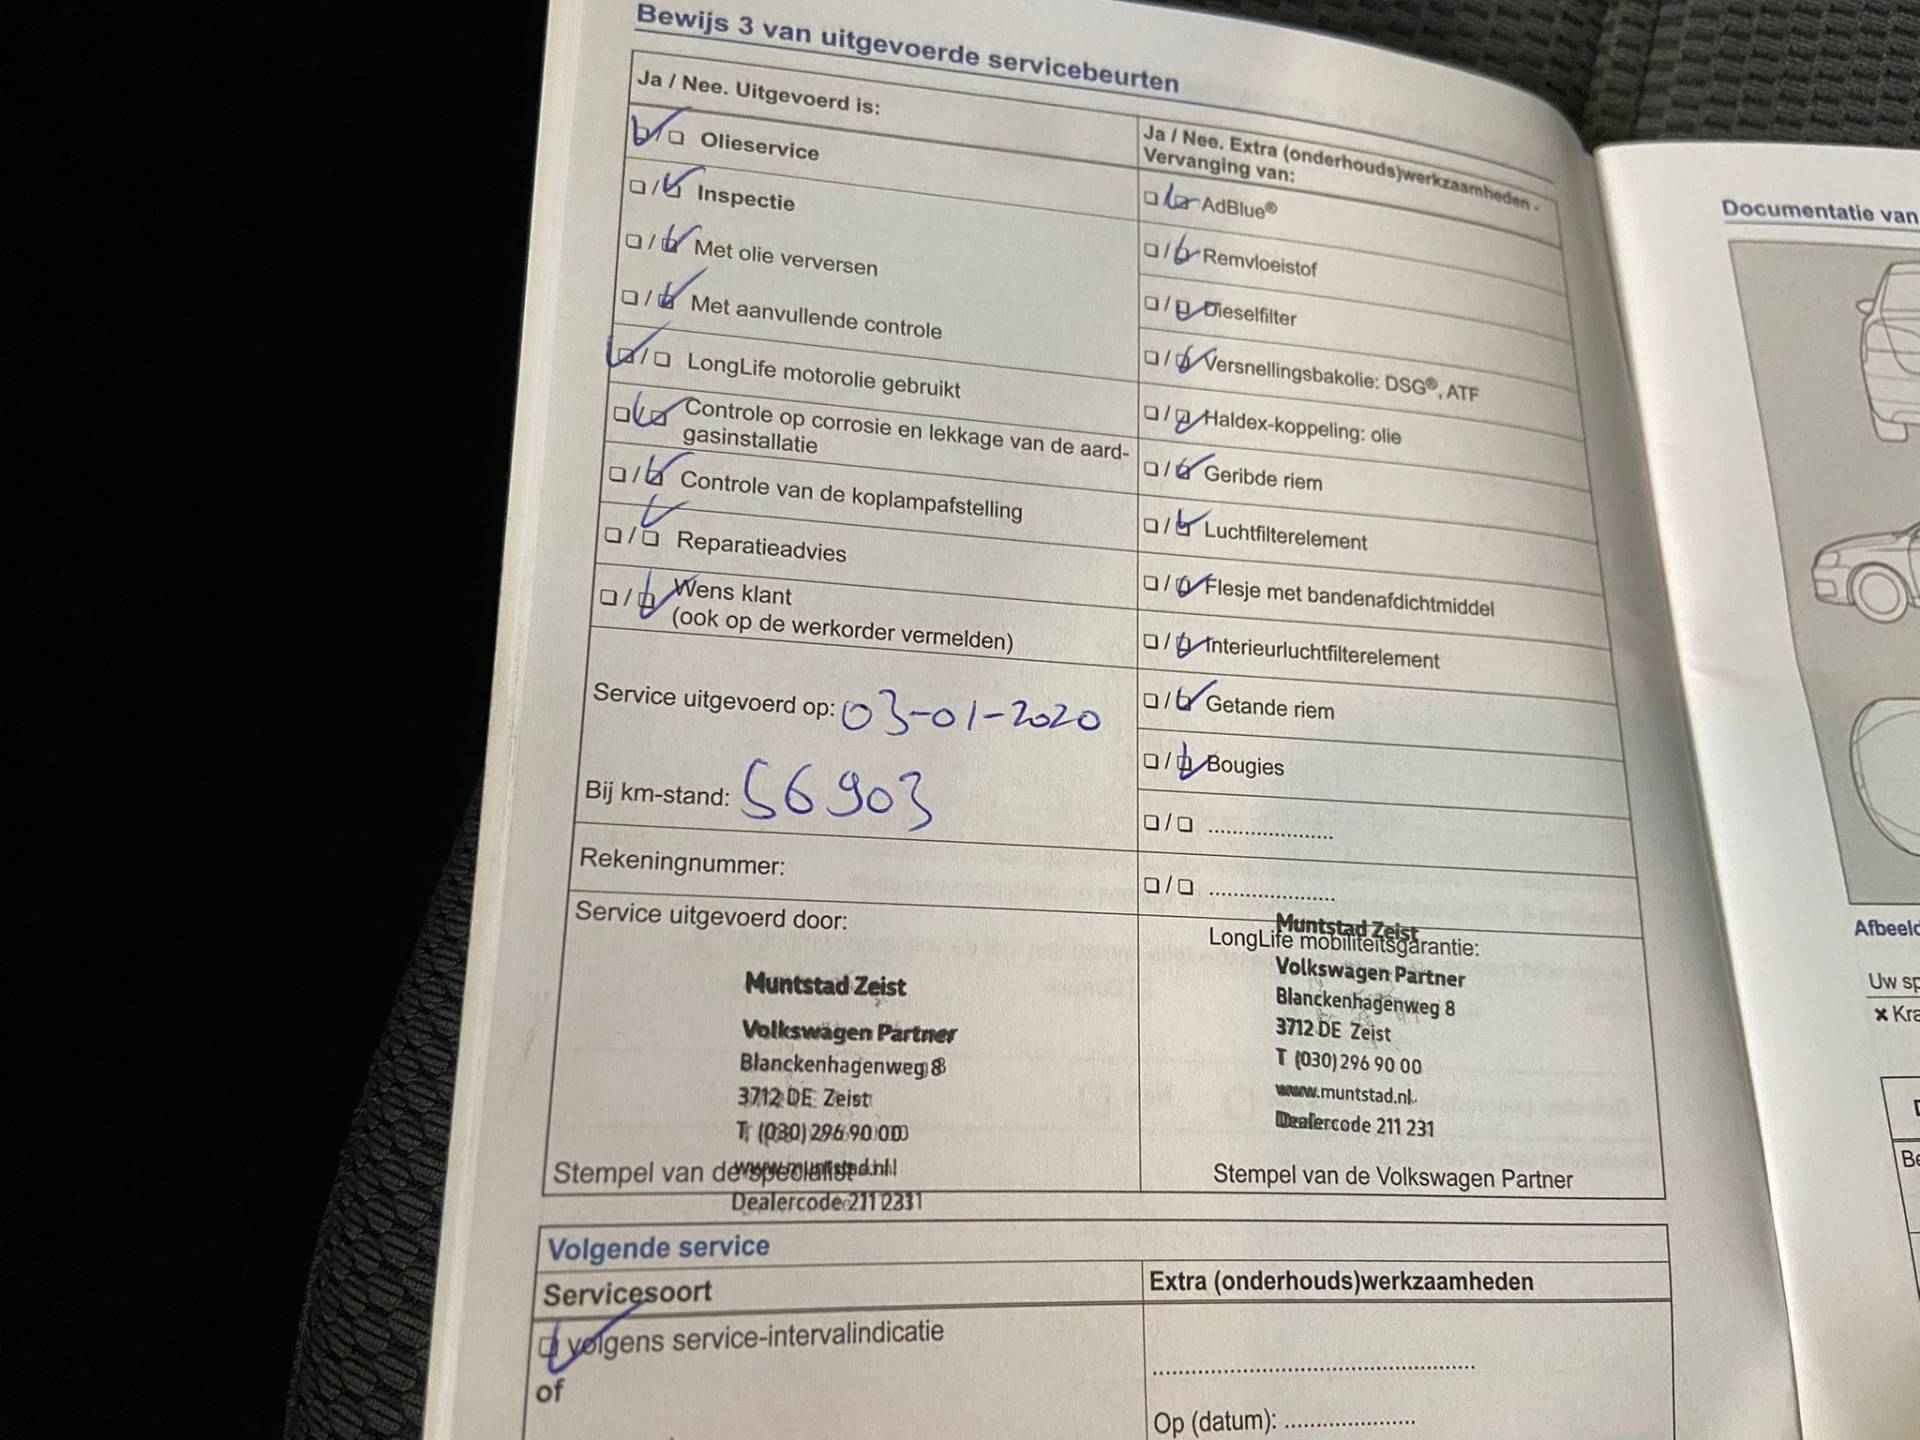 Bewijs 3 van uitgevoerde servicebeurten
Ja / Nee. Uitgevoerd is:
Olieservice
Inspectie
Met olie verversen
Met aanvullende controle
LongLife motorolie gebruikt
Controle op corrosie en lekkage van de aard-
gasinstallatie
Controle van de koplampafstelling
Reparatieadvies
Wens klant
(ook op de werkorder vermelden)
Service uitgevoerd op: 03-01-2020
Bij km-stand: 56903
Rekeningnummer:
Service uitgevoerd door:
Muntstad Zeist
Volkswagen Partner
Blanckenhagenweg 8
3712 DE Zeist
T (030) 296 90 00
www.muntstad.nl
Stempel van de specialist
Dealercode 211 231
Ja / Nee. Extra (onderhouds)werkzaamheden -
Vervanging van:
AdBlue®
Remvloeistof
Dieselfilter
Versnellingsbakolie: DSG®, ATF
Haldex-koppeling: olie
Geribde riem
Luchtfilterelement
Flesje met bandenafdichtmiddel
Interieurluchtfilterelement
Getande riem
Bougies
Muntstad Zeist
LongLife mobiliteitsgarantie:
Volkswagen Partner
Blanckenhagenweg 8
3712 DE Zeist
T (030) 296 90 00
www.muntstad.nl
Dealercode 211 231
Stempel van de Volkswagen Partner
Volgende service
Servicesoort
volgens service-intervalindicatie
of
Extra (onderhouds)werkzaamheden
Op (datum):
Documentatie van
Uw